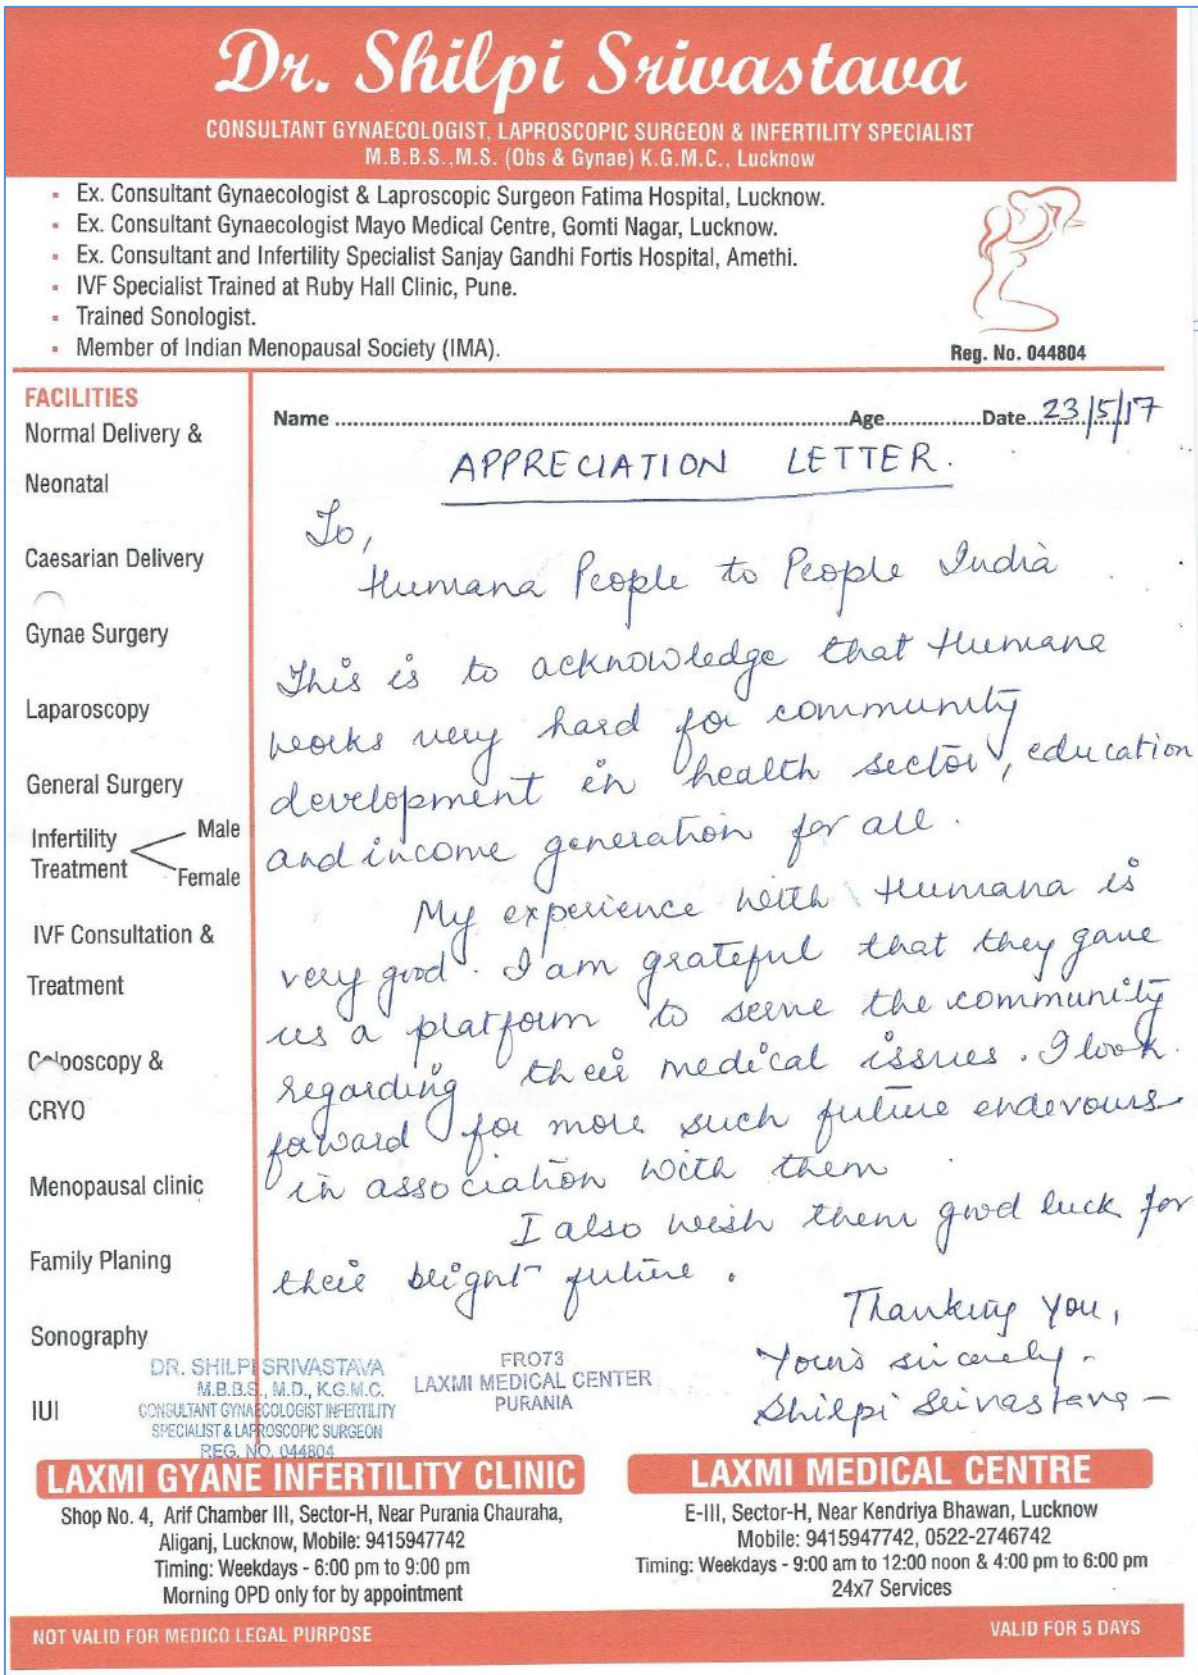 Dr. Shilpi Srivastava
CONSULTANT GYNAECOLOGIST, LAPROSCOPIC SURGEON & INFERTILITY SPECIALIST
M.B.B.S.,M.S. (Obs & Gynae) K.G.M.C., Lucknow
Ex. Consultant Gynaecologist & Laproscopic Surgeon Fatima Hospital, Lucknow.
Ex. Consultant Gynaecologist Mayo Medical Centre, Gomti Nagar, Lucknow.
Ex. Consultant and Infertility Specialist Sanjay Gandhi Fortis Hospital, Amethi.
IVF Specialist Trained at Ruby Hall Clinic, Pune.
Trained Sonologist.
Member of Indian Menopausal Society (IMA).
Reg. No. 044804
FACILITIES
Normal Delivery &
Neonatal
Caesarian Delivery
Gynae Surgery
Laparoscopy
General Surgery
Infertility Treatment Male Female
IVF Consultation &
Treatment
Colposcopy &
CRYO
Menopausal clinic
Family Planing
Sonography
IUI
Name ........ Age ........ Date 23/5/17
APPRECIATION LETTER.
To,
Humana People to People India
This is to acknowledge that Humana
works very hard for community
development in health sector, education
and income generation for all.
My experience with Humana is
very good. I am grateful that they gave
us a platform to serve the community
regarding their medical issues. I look
forward for more such future endevours
in association with them.
I also wish them good luck for
their bright future.
Thanking you,
Yours sincerely.
Shilpi Srivastava
DR. SHILPI SRIVASTAVA
M.B.B.S., M.D., K.G.M.C.
CONSULTANT GYNAECOLOGIST INFERTILITY
SPECIALIST & LAPROSCOPIC SURGEON
REG. NO. 044804
FRO73
LAXMI MEDICAL CENTER
PURANIA
LAXMI GYANE INFERTILITY CLINIC
Shop No. 4, Arif Chamber III, Sector-H, Near Purania Chauraha,
Aliganj, Lucknow, Mobile: 9415947742
Timing: Weekdays - 6:00 pm to 9:00 pm
Morning OPD only for by appointment
LAXMI MEDICAL CENTRE
E-III, Sector-H, Near Kendriya Bhawan, Lucknow
Mobile: 9415947742, 0522-2746742
Timing: Weekdays - 9:00 am to 12:00 noon & 4:00 pm to 6:00 pm
24x7 Services
NOT VALID FOR MEDICO LEGAL PURPOSE
VALID FOR 5 DAYS